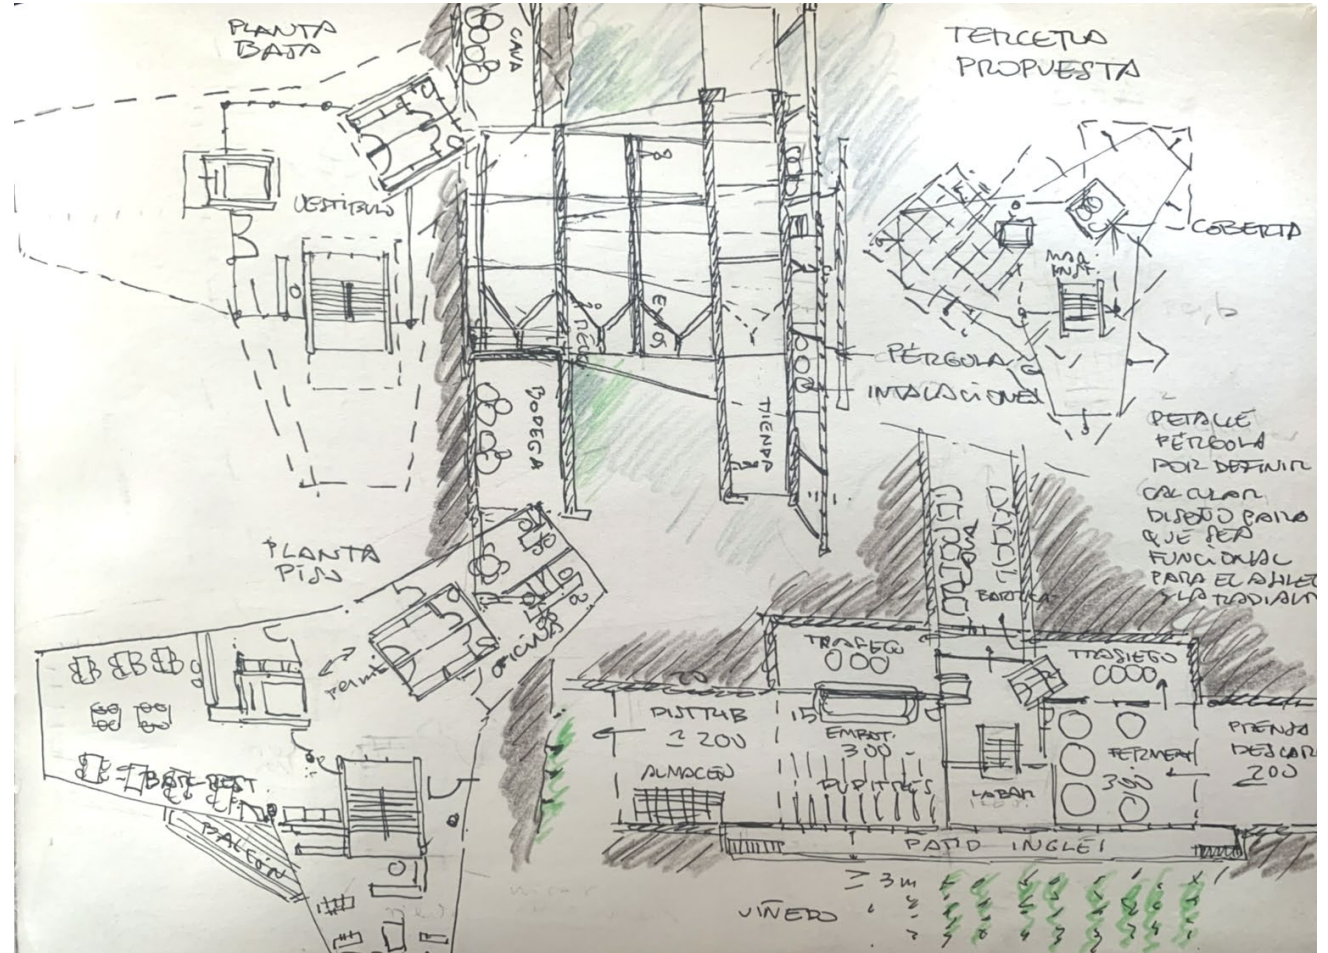 PLANTA
BAJA
CAVA
TERCERA
PROPUESTA
VESTÍBULO
COBERTA
MAQ.
INST.
PÉRGOLA
INTALACIONES
BODEGA
TIENDA
DETALLE
PÉRGOLA
POR DEFINIR
CALCULAR
DISEÑO PARA
QUE SEA
FUNCIONAL
PARA EL
Y LA
PLANTA
PISO
OFICINAS
BALCÓN
BARRICA
TRASIEGO
TRASIEGO
DISTRIB
≥ 200
EMBOT.
300
ALMACÉN
PUPITRES
LABOR
FERMENT
300
PRENSA
DESCAR
200
PATIO INGLES
≥ 3 m
VIÑEDO